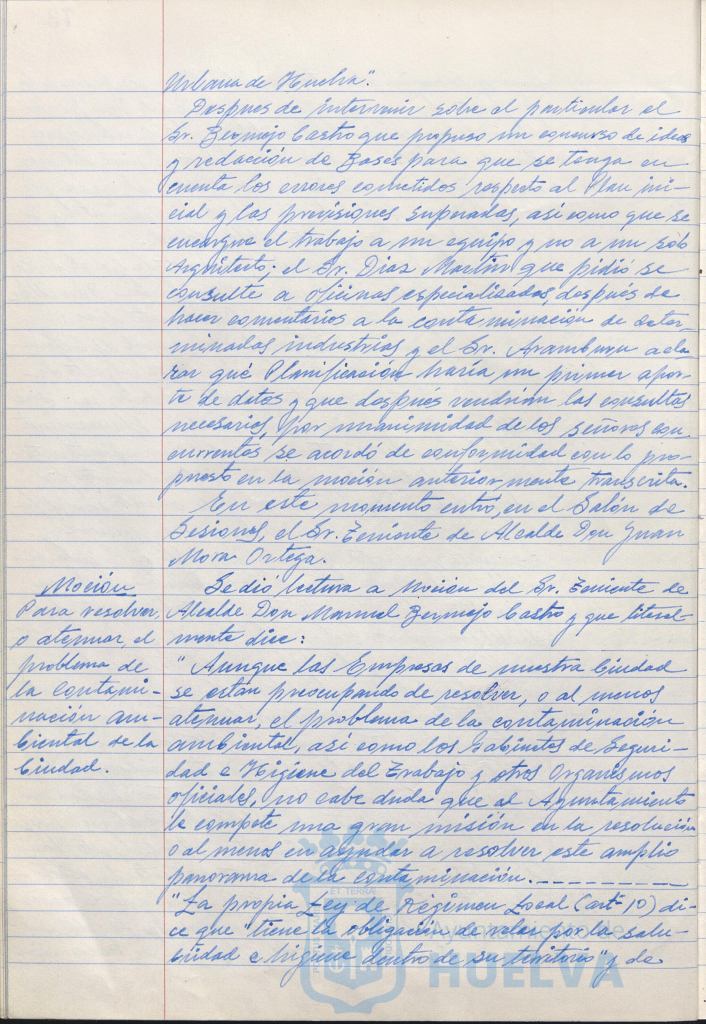 Urbana de Huelva".
Despues de intervenir sobre el particular el
Sr. Bermejo Castro que propuso un concurso de ideas
y redacción de Bases para que se tenga en
cuenta los errores cometidos respecto al Plan ini-
cial y las previsiones superadas, así como que se
encargue el trabajo a un equipo y no a un sólo
Arquitecto; el Sr. Diaz Martin que pidió se
consulte a oficinas especializadas, después de
hacer comentarios a la contaminación de deter-
minadas industrias y el Sr. Aramburu acla
rar qué Planificación haría un primer apor-
te de datos y que después vendrian las consultas
necesarias, por unanimidad de los señores con-
currentes se acordó de conformidad con lo pro-
puesto en la moción anteriormente transcrita.
En este momento entró, en el Salón de
Sesiones, el Sr. Teniente de Alcalde Don Juan
Mora Ortega.
Moción
Para resolver,
o atenuar, el
problema de
la contami-
nación am-
biental de la
Ciudad.
Se dió lectura a Moción del Sr. Teniente de
Alcalde Don Manuel Bermejo Castro y que literal-
mente dice:
"Aunque las Empresas de nuestra Ciudad
se están preocupando de resolver, o al menos
atenuar, el problema de la contaminación
ambiental, así como los Gabinetes de Seguri-
dad e Higiene del Trabajo y otros Organismos
oficiales, no cabe duda que al Ayuntamiento
le compete una gran misión en la resolución
o al menos en ayudar a resolver este amplio
panorama de la contaminación.---------
"La propia Ley de Régimen Local (artº 10) di-
ce que "tiene la obligación de velar por la salu-
bridad e higiene dentro de su territorio" y de
ET TERRAE
HUELVA